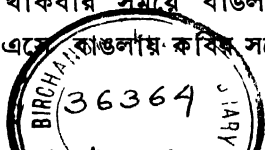 থাকিবার সময়ে বাঙল
এসে বাঙলায় কবির স
BIRCHAN
36364